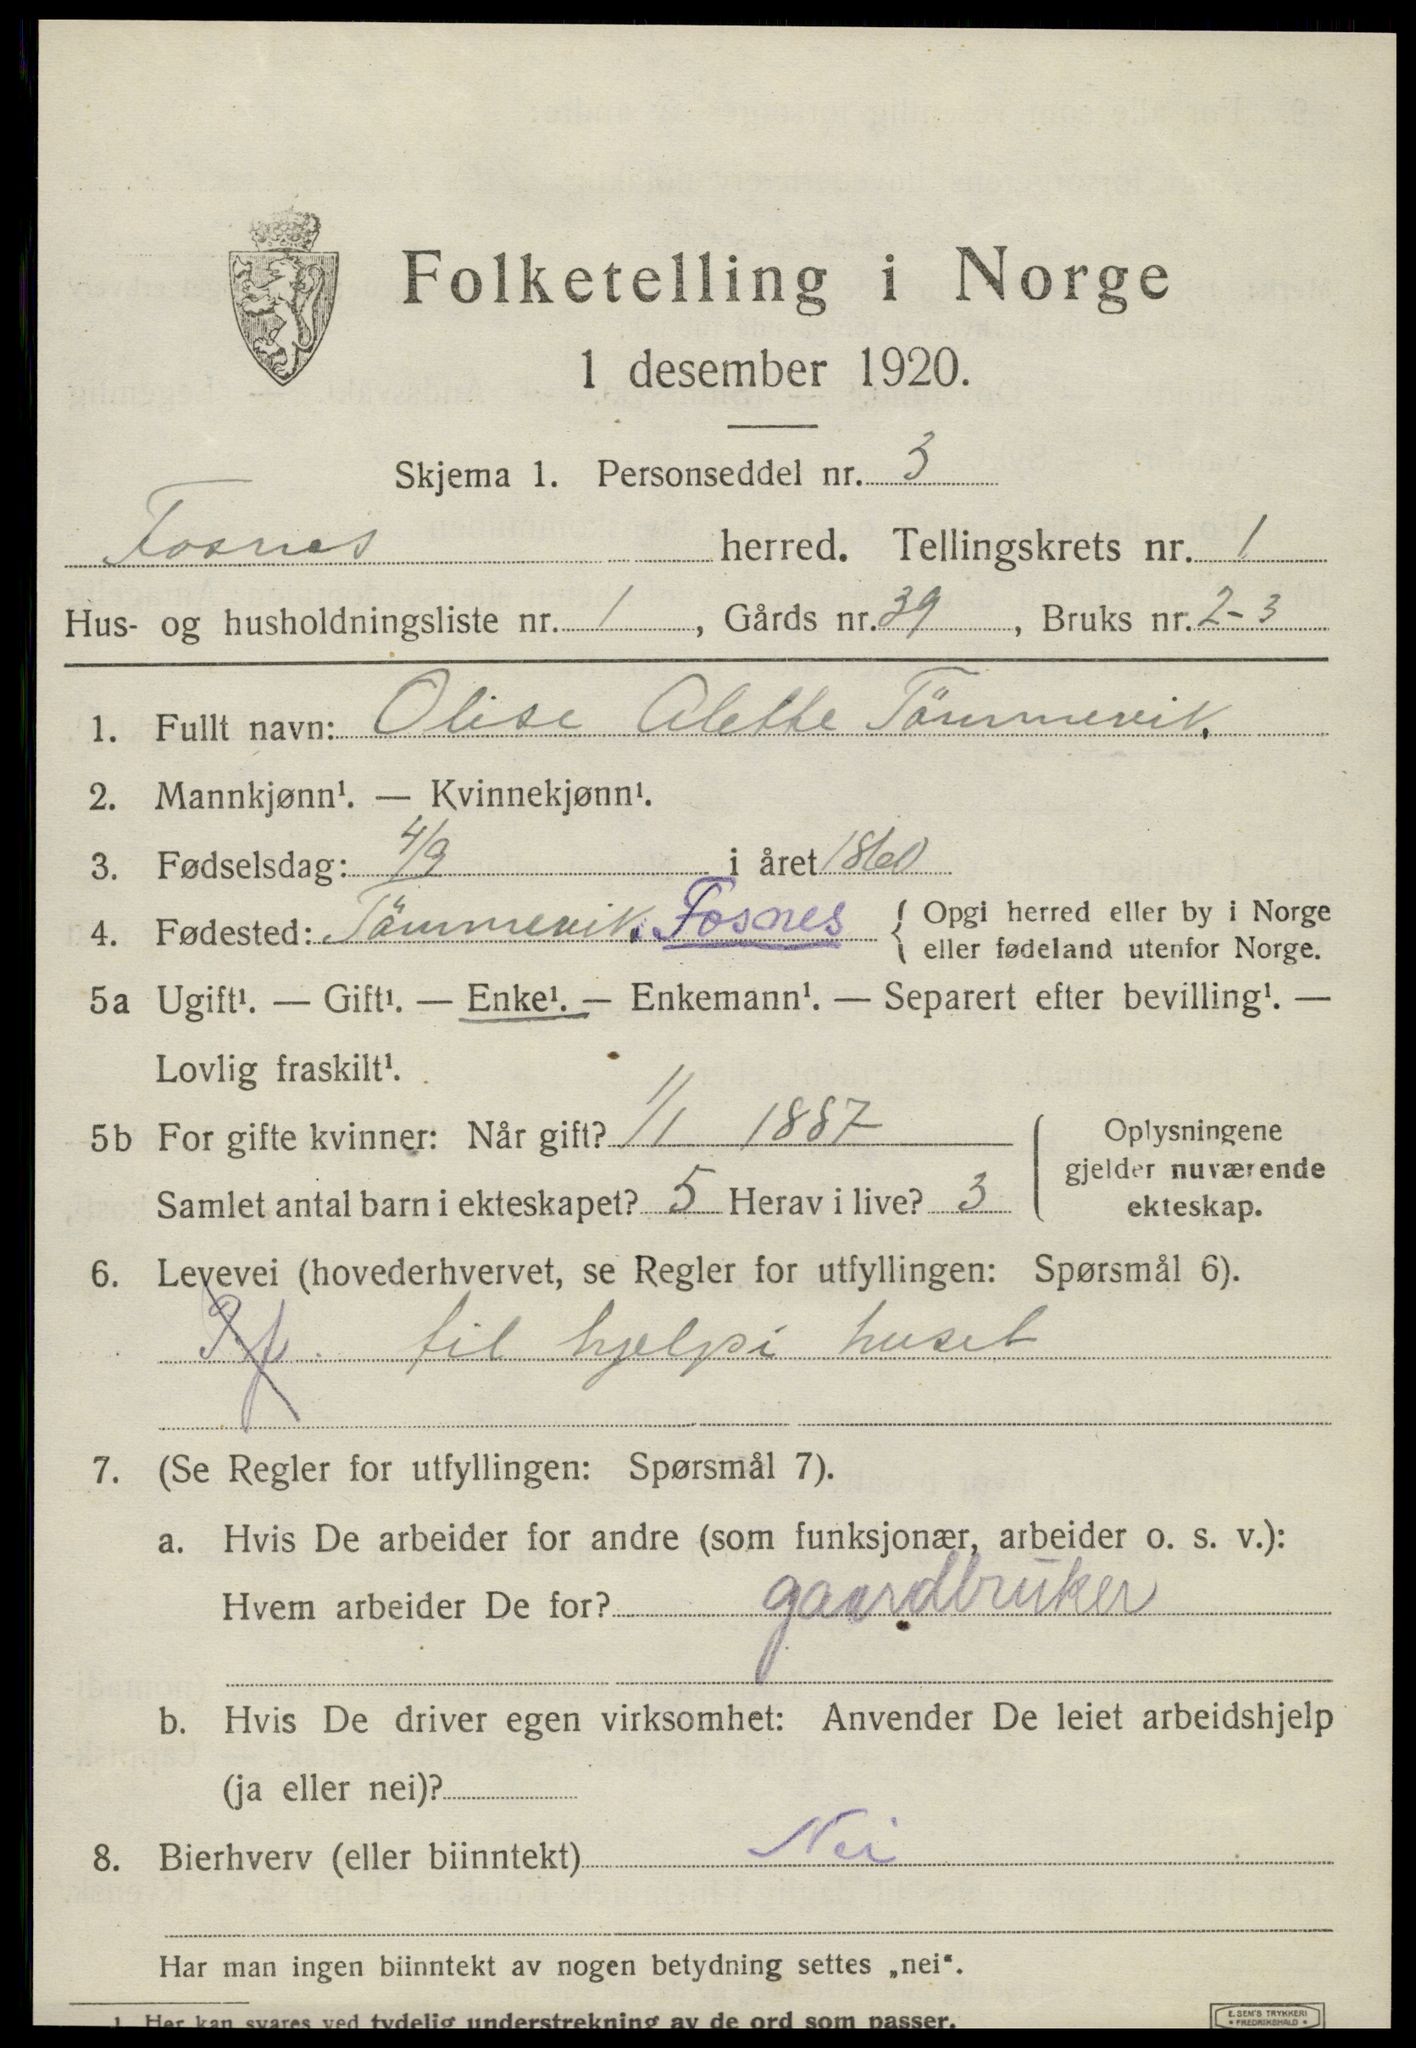 Folketelling i Norge
1 desember 1920.
Skjema 1. Personseddel nr. 3
Fosnes herred. Tellingskrets nr. 1
Hus- og husholdningsliste nr. 1, Gårds nr. 39, Bruks nr. 2-3
1. Fullt navn: Olise Alette Tömmervik.
2. Mannkjønn¹. — Kvinnekjønn¹.
3. Fødselsdag: 4/9 i året 1860
4. Fødested: Tömmervik. Fosnes { Opgi herred eller by i Norge
eller fødeland utenfor Norge.
5a Ugift¹. — Gift¹. — Enke¹. — Enkemann¹. — Separert efter bevilling¹. —
Lovlig fraskilt¹.
5b For gifte kvinner: Når gift? 1/1 1887
Samlet antal barn i ekteskapet? 5 Herav i live? 3
Oplysningene
gjelder nuværende
ekteskap.
6. Levevei (hovederhvervet, se Regler for utfyllingen: Spørsmål 6).
til hjelp i huset
7. (Se Regler for utfyllingen: Spørsmål 7).
a. Hvis De arbeider for andre (som funksjonær, arbeider o. s. v.):
Hvem arbeider De for? gaardbruker
b. Hvis De driver egen virksomhet: Anvender De leiet arbeidshjelp
(ja eller nei)?
8. Bierhverv (eller biinntekt) Nei
Har man ingen biinntekt av nogen betydning settes „nei“.
1. Her kan svares ved tydelig understrekning av de ord som passer.
E. SEM'S TRYKKERI
FREDRIKSHALD